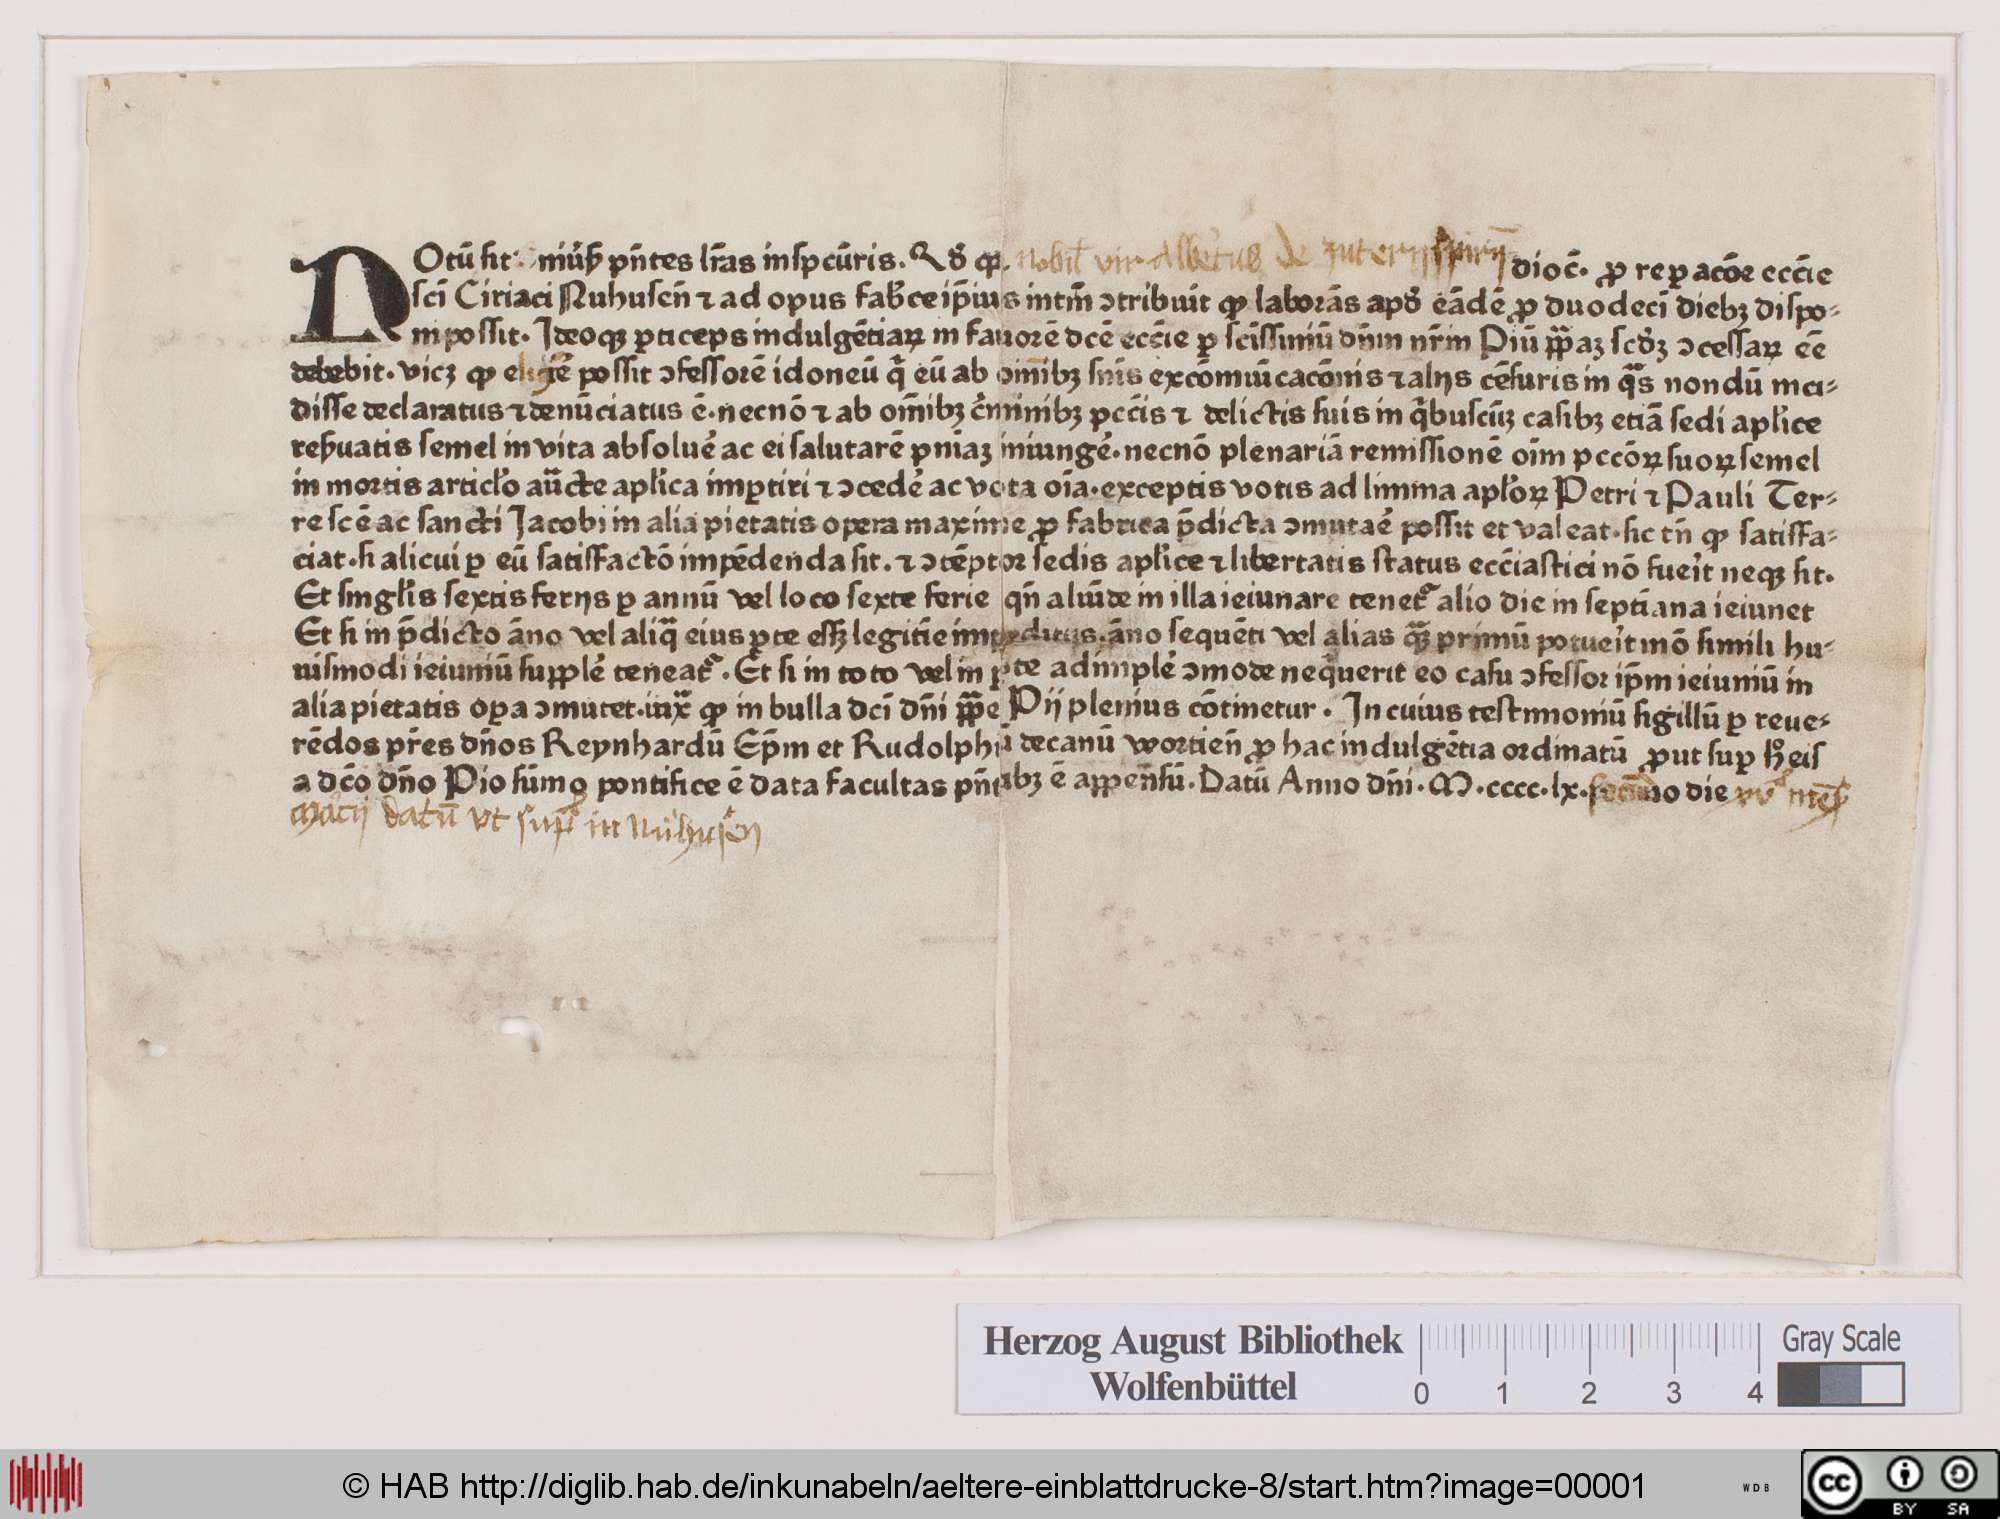 NOtū sit vniũsꝭ pñtes lr̃as inspcũris. Qd̉ cꝓ. nobil̉ vir Albertus de diocc̄. ꝓ reꝑacōe eccīe
sci Ciriaci Nuhuseñ ⁊ ad opus fab̉ce ip̄ius intm̄ ↄtribuit qꝫ laborās apd̉ eādē ꝓ duodeci diebꝫ dispo⸗
ni possit. Ideoqꝫ ꝑticeps indulgētiaꝝ in fauorē dcē eccīe ꝑ scissimū dn̄m nr̄m Piū ppaꝫ scd̉ꝫ ↄcessaꝝ eē
debebit. vicꝫ qꝫ elig̉e possit ↄfessorē idoneū q̄ eū ab om̄ibꝫ suīs excōmuīcacōnis ⁊ alijs cēsuris in qͣs nondū inci⸗
disse declaratus ⁊ denūciatus ē. necnō ⁊ ab om̄ibꝫ c̉minibꝫ pcc̄is ⁊ delictis suis in q̄buscūꝫ casibꝫ etiā sedi apl̉ice
res̉uatis semel in vita absolue̾ ac ei salutarē pn̄iaꝫ iniunge̾. necnō plenariā remissionē oim̄ pccōꝝ suoꝝ semel
in mortis articl̉o auͨcte apl̉ica imꝑtiri ⁊ ↄcede̾ ac vota oīa. exceptis votis ad limina apl̉oꝝ Petri ⁊ Pauli Ter⸗
re scē ac sancti Jacobi in alia pietatis opera maxime ꝓ fabrica p̄dicta ↄmutae̾ possit et valeat. sic tn̄ qꝫ satisfa⸗
ciat. si alicui ꝑ eū satisfactō impēdenda sit. ⁊ ↄtēptor sedis apl̉ice ⁊ libertatis status ecc̄iastici nō fuei̾t neqꝫ sit.
Et singl̉is sextis ferijs ꝑ annū vel loco sexte ferie qn̄ aliūde in illa ieiunare tenet᷑ alio die in septīana ieiunet
Et si in p̄dicto āno vel aliq̄ eius ꝑte esꝫ legitīe impeditus. āno sequēti vel alias qͣꝫ primū potuei̾t mō simili hu⸗
iusmodi ieiuniū supple̾ teneat᷑. Et si in toto vel in ꝑte adimple̾ ↄmode neq̄uerit eo casu ↄfessor ip̄m ieiuniū in
alia pietatis oꝑa ↄmutet. iuxͣ qꝫ in bulla dci dn̄i ppͣe Pij plenius cōtinetur. In cuius testimoniū sigillū ꝑ reue⸗
rēdos pr̄es dn̄os Reynhardū Ep̄m et Rudolphū decanū wortien̄ ꝓ hac indulgētia ordinatū ꝓut suꝑ h̉ eis
a dc̄o dn̄o Pio sūmo pontifice ē data facultas pn̄tibꝫ ē appensū. Datū Anno dn̄i. M. cccc. lx. secūdo die xv mēs̉
Marcij datū vt sup̉ in Nuhusen
Herzog August Bibliothek
Wolfenbüttel
0 1 2 3 4
Gray Scale
© HAB http://diglib.hab.de/inkunabeln/aeltere-einblattdrucke-8/start.htm?image=00001
WDB
cc BY SA